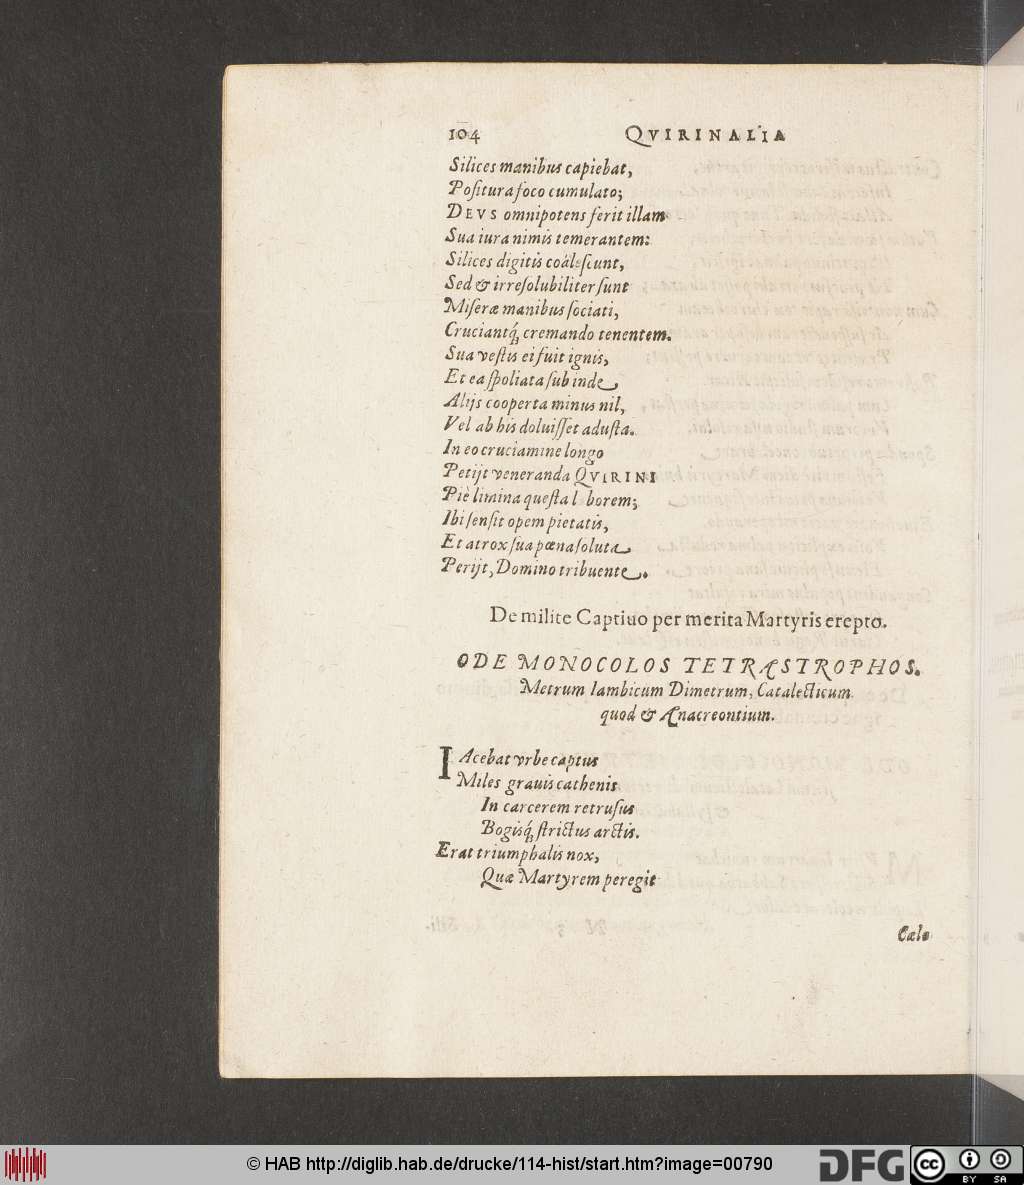 104 QVIRINALIA
Silices manibus capiebat,
Poſitura foco cumulato;
DEVS omnipotens ferit illam
Sua iura nimis temerantem:
Silices digitis coàleſcunt,
Sed & irreſolubiliter ſunt
Miſeræ manibus ſociati,
Cruciantq́; cremando tenentem.
Sua veſtis ei fuit ignis,
Et ea ſpoliata ſubinde
Alijs cooperta minus nil,
Vel ab his doluiſſet aduſta.
In eo cruciamine longo
Petijt veneranda QVIRINI
Piè limina queſta l borem;
Ibi ſenſit opem pietatis,
Et atrox ſua pœna ſoluta
Perijt, Domino tribuente.
De milite Captiuo per merita Martyris erepto.
ODE MONOCOLOS TETRASTROPHOS.
Metrum Iambicum Dimetrum, Catalecticum
quod & Anacreontium.
IAcebat vrbe captus
Miles grauis cathenis
In carcerem retruſus
Bogisq́; ſtrictus arctis.
Erat triumphalis nox,
Quæ Martyrem peregit
Cælo
© HAB http://diglib.hab.de/drucke/114-hist/start.htm?image=00790
DFG
cc
BY SA